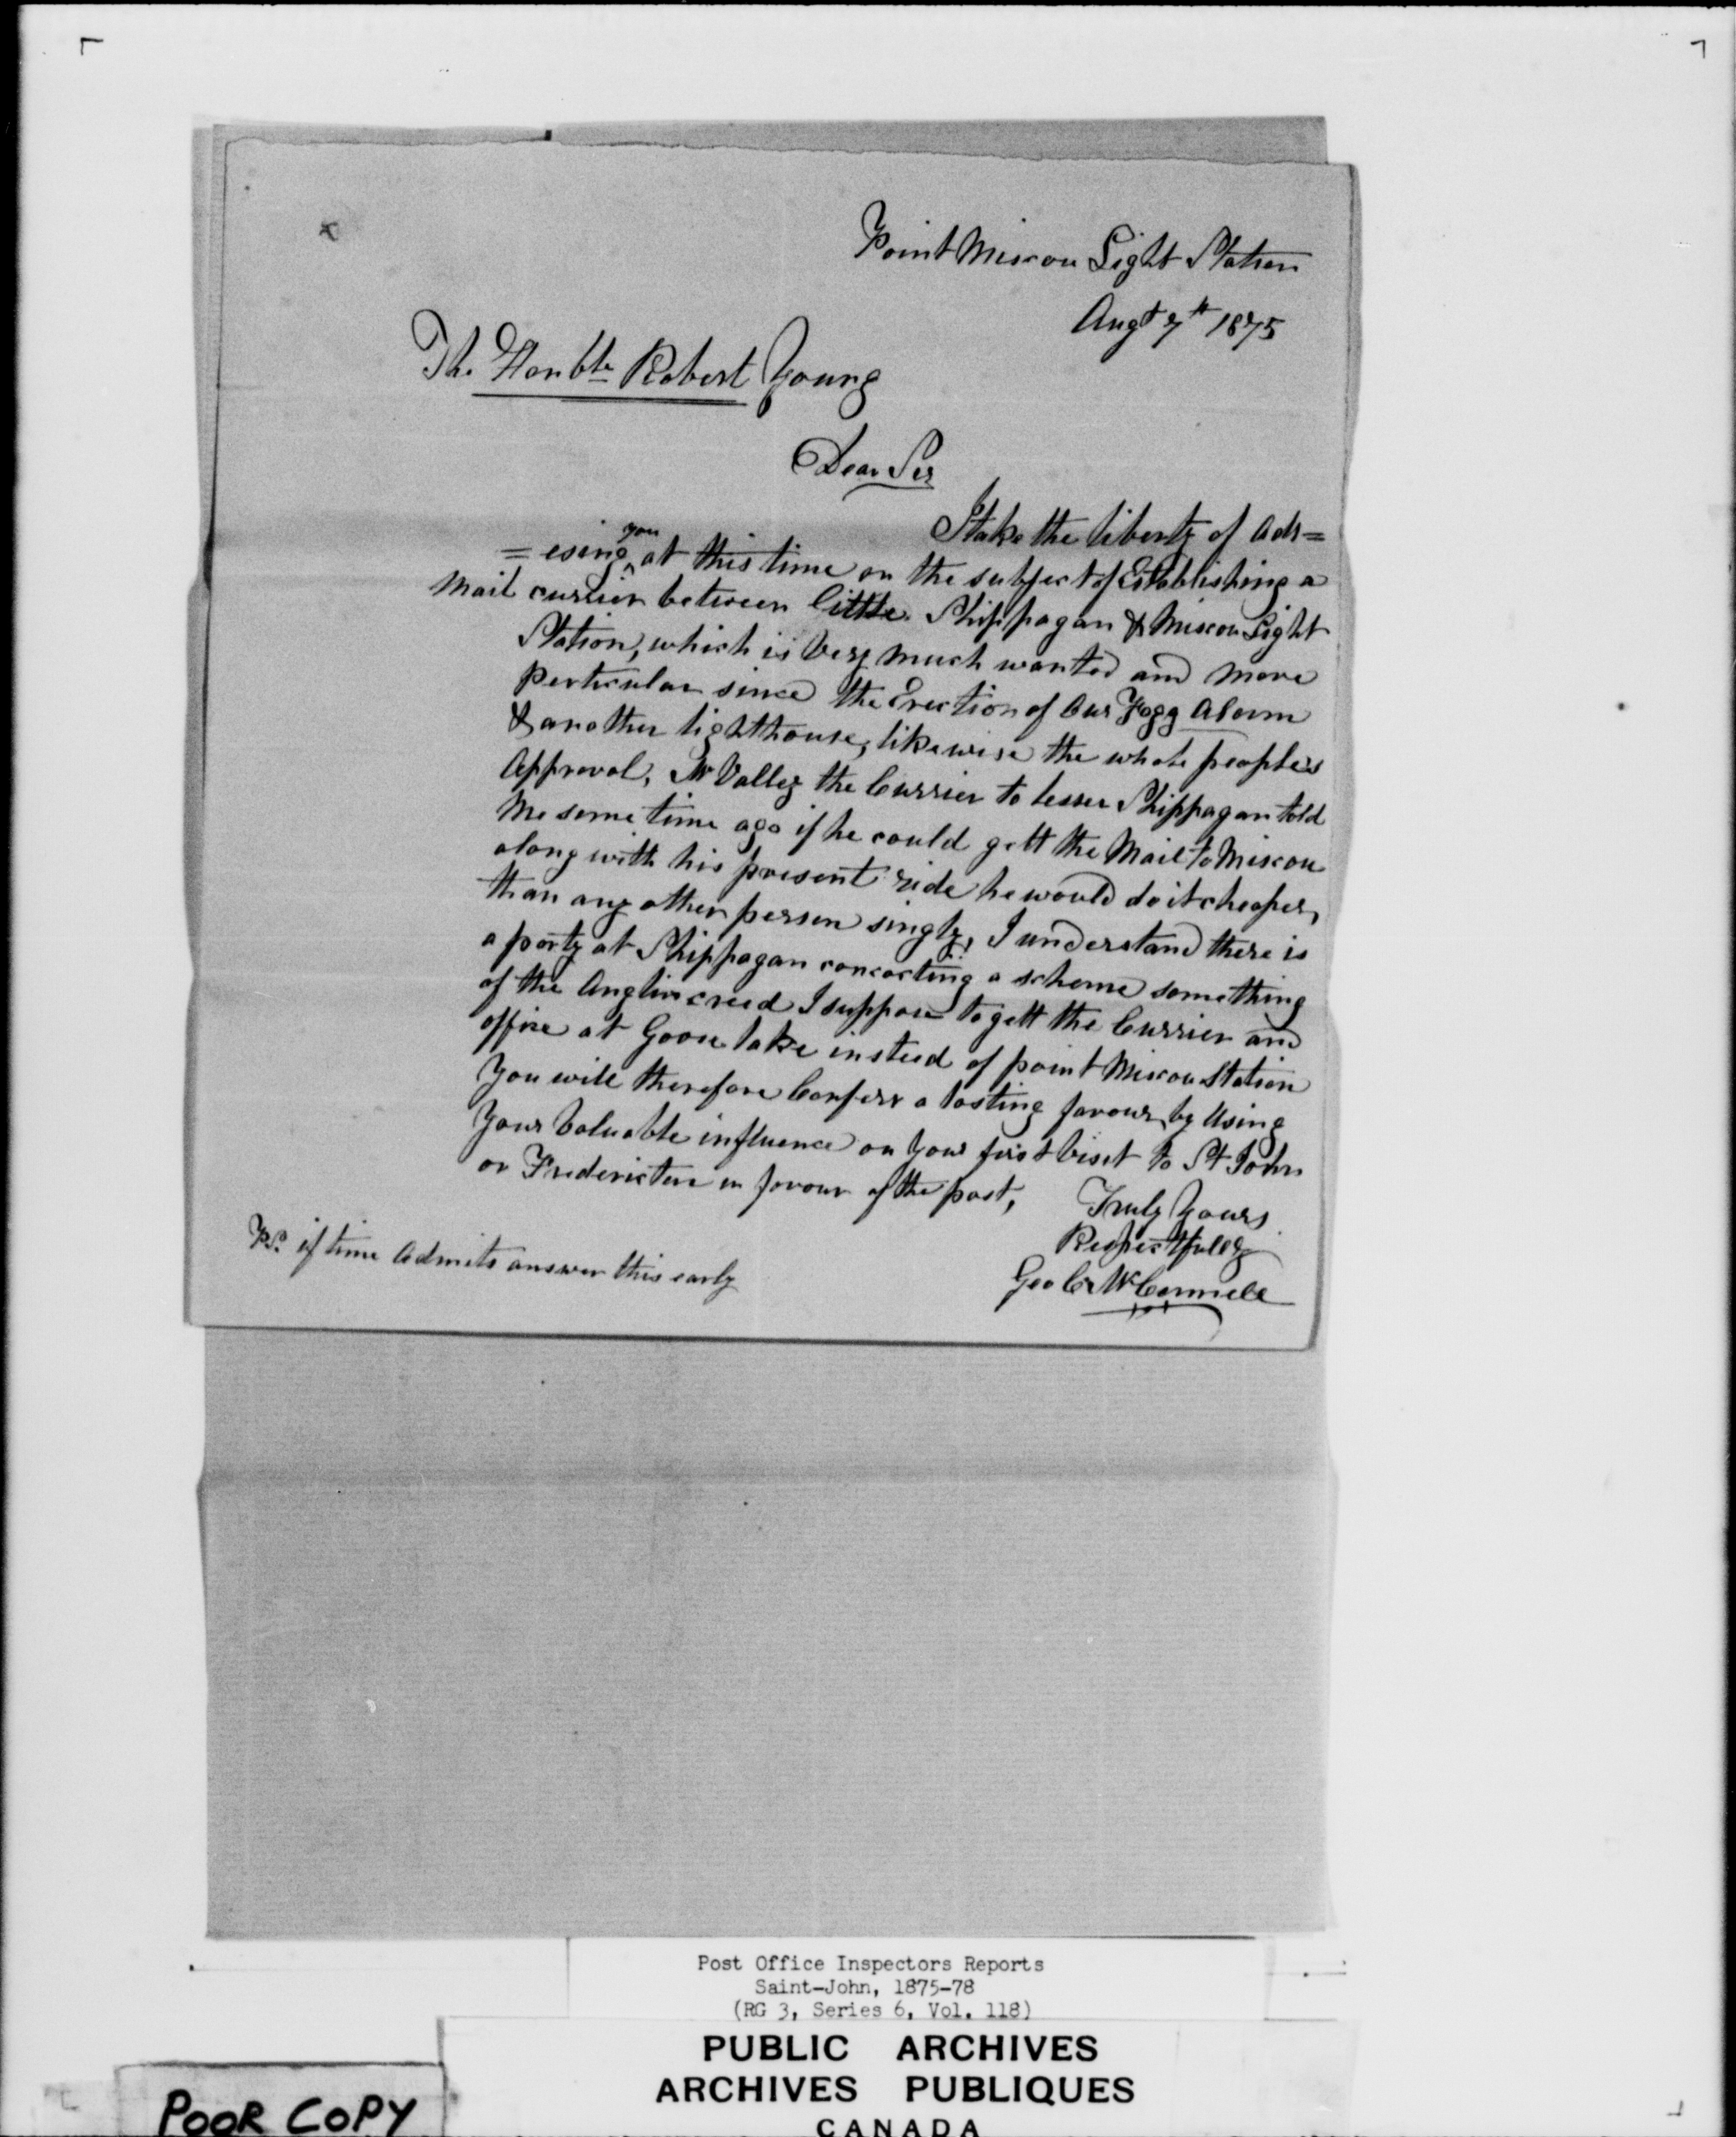 Point Miscou Light Station
Augt 7th 1875
The Honble Robert Young
Dear Sir
I take the liberty of adr=
=esing you at this time on the subject of Establishing a
Mail currier between little Shippagan & Miscou Light
Station, which is Very much wanted and more
perticular since the Erection of Our Fogg Alarm
& another lighthouse, likewise the whole people's
Approval, Mr Valley the Currier to lesser Shippagan told
Me some time ago if he could gett the Mail to Miscou
along with his present ride he would do it cheaper,
than any other person singly, I understand there is
a party at Shippagan concocting a scheme something
of the Anglin creed I suppose to gett the Currier and
offise at Goose lake instead of point Miscou Station
You will therefore Conferr a lasting favour by Using
Your Valuable influence on Your first Visit to St John
or Fredericton in favour of the post,
Truly Yours
Respectfully
Geo Cr McConnell
P.S. if time Admits answer this early
Post Office Inspectors Reports
Saint-John, 1875-78
(RG 3, Series 6, Vol. 118)
PUBLIC ARCHIVES
ARCHIVES PUBLIQUES
CANADA
POOR COPY